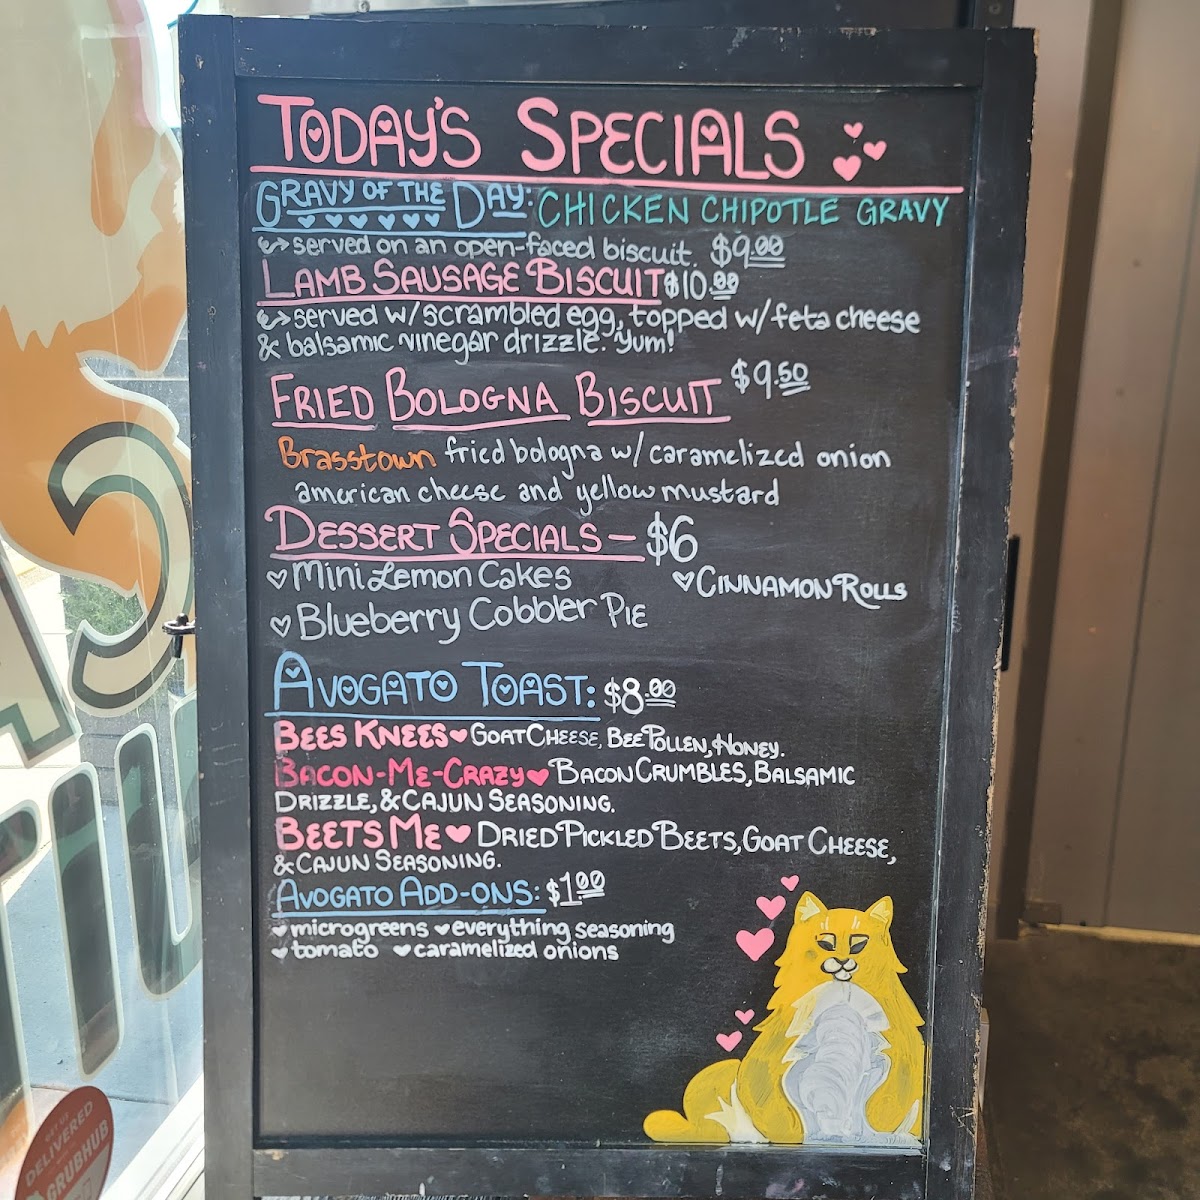 TODAY'S SPECIALS
GRAVY OF THE DAY: CHICKEN CHIPOTLE GRAVY
served on an open-faced biscuit. $9.00
LAMB SAUSAGE BISCUIT $10.00
served w/scrambled egg, topped w/feta cheese
& balsamic vinegar drizzle. Yum!
FRIED BOLOGNA BISCUIT $9.50
Brasstown fried bologna w/ caramelized onion
american cheese and yellow mustard
DESSERT SPECIALS — $6
Mini Lemon Cakes
CINNAMON ROLLS
Blueberry Cobbler PIE
AVOGATO TOAST: $8.00
BEES KNEES GOAT CHEESE, BEE POLLEN, HONEY.
BACON-ME-CRAZY BACON CRUMBLES, BALSAMIC
DRIZZLE, & CAJUN SEASONING.
BEETS ME DRIED PICKLED BEETS, GOAT CHEESE,
& CAJUN SEASONING.
AVOGATO ADD-ONS: $1.00
microgreens everything seasoning
tomato caramelized onions
GET US
DELIVERED
GRUBHUB